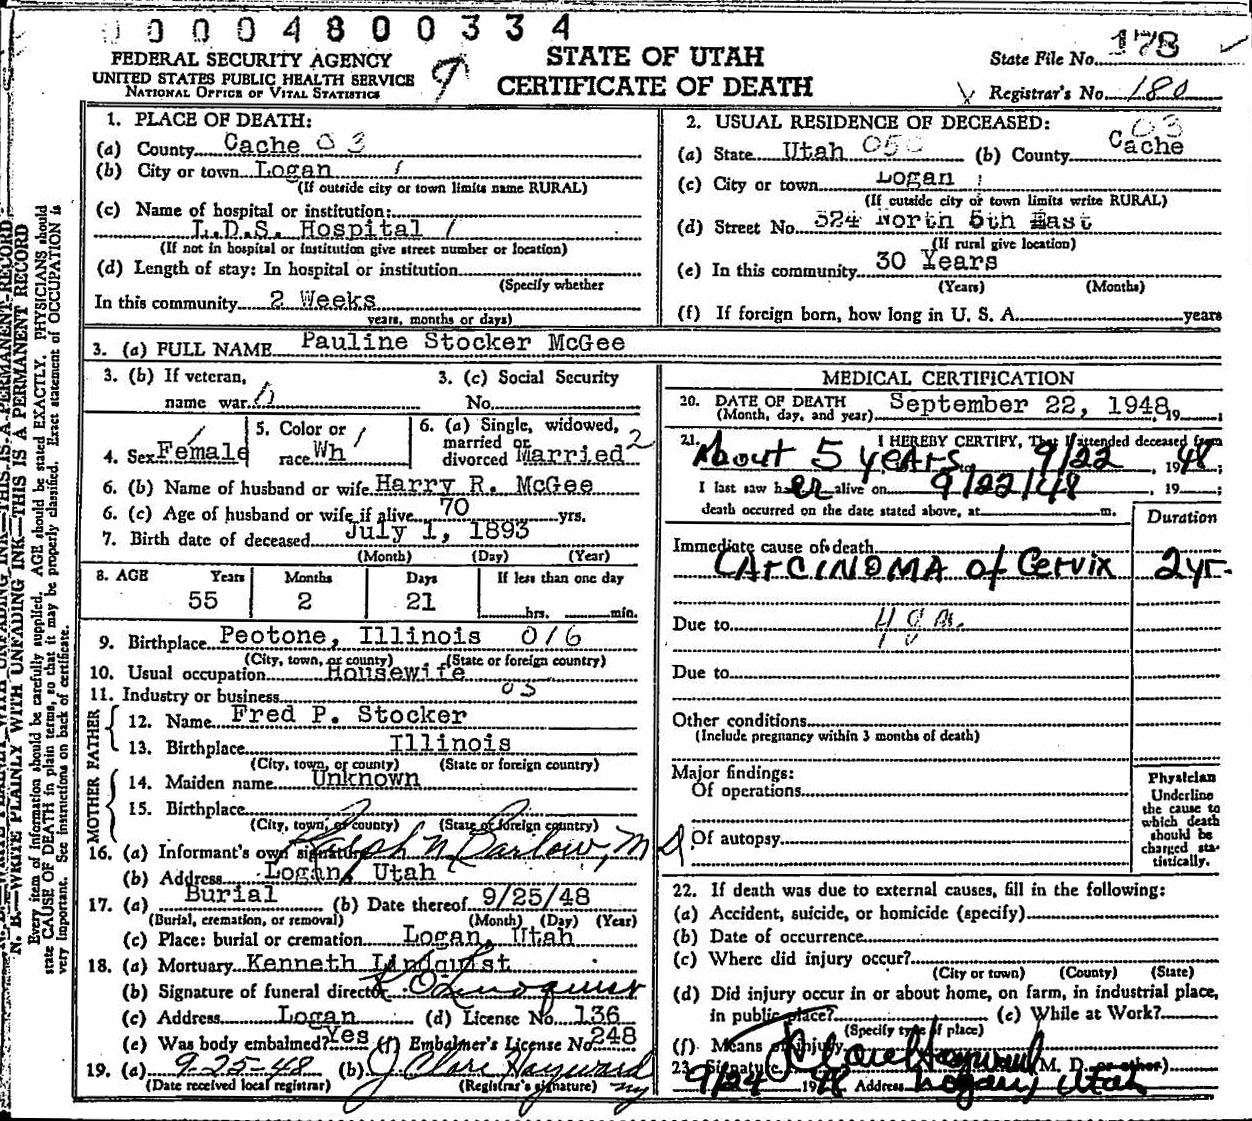 00004800334
FEDERAL SECURITY AGENCY
UNITED STATES PUBLIC HEALTH SERVICE
NATIONAL OFFICE OF VITAL STATISTICS
9
STATE OF UTAH
CERTIFICATE OF DEATH
State File No. 178
Registrar's No. 180
N. B.—WRITE PLAINLY WITH UNFADING INK—THIS IS A PERMANENT RECORD
Every item of information should be carefully supplied. AGE should be stated EXACTLY. PHYSICIANS should
state CAUSE OF DEATH in plain terms, so that it may be properly classified. Exact statement of OCCUPATION is
very important. See instructions on back of certificate.
1. PLACE OF DEATH:
(a) County Cache 03
(b) City or town Logan /
(If outside city or town limits name RURAL)
(c) Name of hospital or institution:
L.D.S. Hospital /
(If not in hospital or institution give street number or location)
(d) Length of stay: In hospital or institution
(Specify whether
In this community 2 Weeks
years, months or days)
2. USUAL RESIDENCE OF DECEASED:
(a) State Utah 050 (b) County Cache 03
(c) City or town Logan
(If outside city or town limits write RURAL)
(d) Street No. 324 North 5th East
(If rural give location)
(e) In this community 30 Years
(Years) (Months)
(f) If foreign born, how long in U. S. A. years
3. (a) FULL NAME Pauline Stocker McGee
3. (b) If veteran,
name war 0
3. (c) Social Security
No.
4. Sex Female /
5. Color or
race Wh /
6. (a) Single, widowed,
married or
divorced Married 2
6. (b) Name of husband or wife Harry R. McGee
6. (c) Age of husband or wife if alive 70 yrs.
7. Birth date of deceased July 1, 1893
(Month) (Day) (Year)
8. AGE Years Months Days If less than one day
55 2 21 hrs. min.
9. Birthplace Peotone, Illinois 016
(City, town, or county) (State or foreign country)
10. Usual occupation Housewife
11. Industry or business 05
FATHER
12. Name Fred P. Stocker
13. Birthplace Illinois
(City, town, or county) (State or foreign country)
MOTHER
14. Maiden name Unknown
15. Birthplace
(City, town, or county) (State or foreign country)
16. (a) Informant's own signature Ralph N Barlow, M D
(b) Address Logan, Utah
17. (a) Burial (b) Date thereof 9/25/48
(Burial, cremation, or removal) (Month) (Day) (Year)
(c) Place: burial or cremation Logan, Utah
18. (a) Mortuary Kenneth Lindquist
(b) Signature of funeral director K. O. Lindquist
(c) Address Logan (d) License No. 136
(e) Was body embalmed? Yes (f) Embalmer's License No. 248
19. (a) 9-25-48 (b) J Clare Hayward
(Date received local registrar) (Registrar's signature)
MEDICAL CERTIFICATION
20. DATE OF DEATH
(Month, day, and year) September 22, 1948, 19 ;
21. I HEREBY CERTIFY, That I attended deceased from
About 5 years to 9/22, 1948;
I last saw her alive on 9/22/48, 19 ;
death occurred on the date stated above, at m.
Duration
Immediate cause of death
CARCINOMA of Cervix 2 yr.
Due to
Due to
Other conditions
(Include pregnancy within 3 months of death)
Major findings:
Of operations
Of autopsy
Physician
Underline
the cause to
which death
should be
charged sta-
tistically.
22. If death was due to external causes, fill in the following:
(a) Accident, suicide, or homicide (specify)
(b) Date of occurrence
(c) Where did injury occur?
(City or town) (County) (State)
(d) Did injury occur in or about home, on farm, in industrial place,
in public place? (e) While at Work?
(Specify type of place)
(f) Means of injury
23. Signature J Clare Hayward (M. D. or other)
9/24 1948 Address Logan, Utah